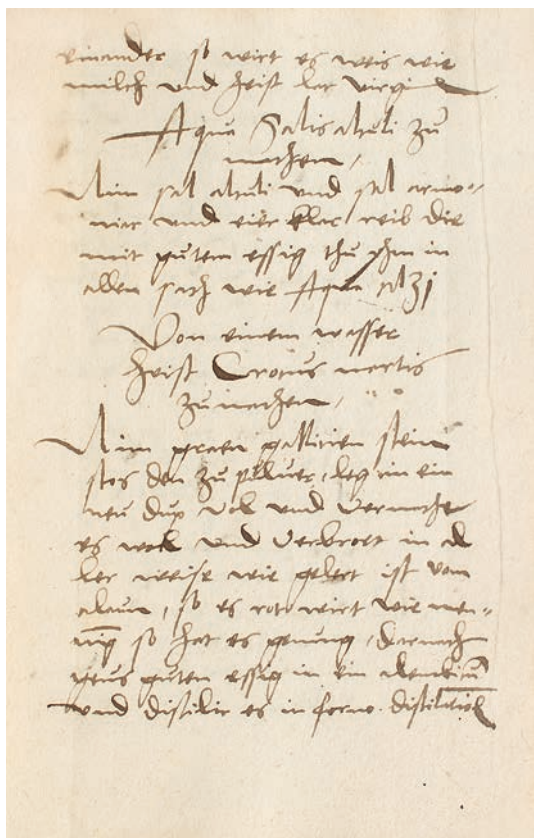 einander so wirt es weis wie
milch und heist lac virginis
Aqua Salis alculi zu
machen,
Nim sal alculi und sal armo-
niac und eier klar reib die
mit gutem essig thu yhm in
allen sach wie Aqua
Von einem wasser
heist Crocus martis
zu machen,
Nim graen gallitien stein
stos den zu puluer, leg in ein
neu dup vol und vermache
es wol und verbroet in al
ler weise wie gelert ist vom
alaun, so es rot wirt wie men-
nig so hat es genung, darnach
geus guten essig in ein
und distilir es in forno